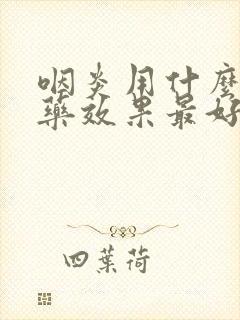 咽炎用什麼
藥效果最好
四葉荷